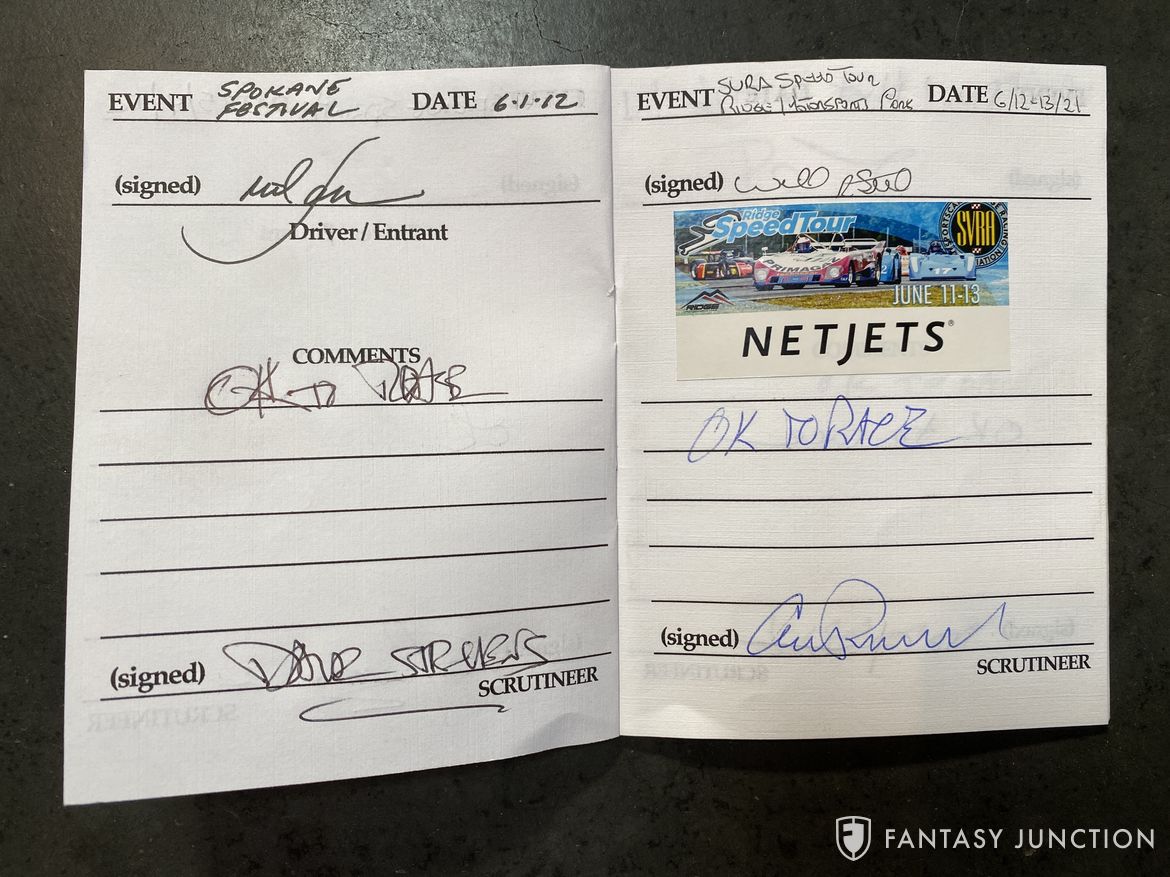 EVENT SPOKANE
FESTIVAL DATE 6-1-12
(signed)
Driver / Entrant
COMMENTS
OK TO RACE
(signed) DAVE STREVENS
SCRUTINEER
EVENT SVRA SPEED TOUR
RIDGE MOTORSPORTS PARK DATE 6/12-13/21
(signed)
Ridge
SpeedTour
SVRA
PRIMAGAZ
2
17
RIDGE
JUNE 11-13
NETJETS®
OK TO RACE
(signed)
SCRUTINEER
FANTASY JUNCTION